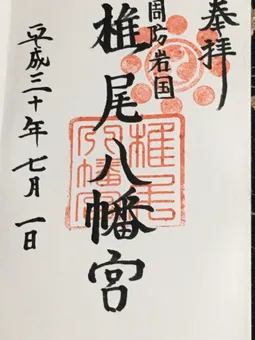 奉拝
周防岩国
椎尾八幡宮
平成三十年七月一日
椎尾八幡宮